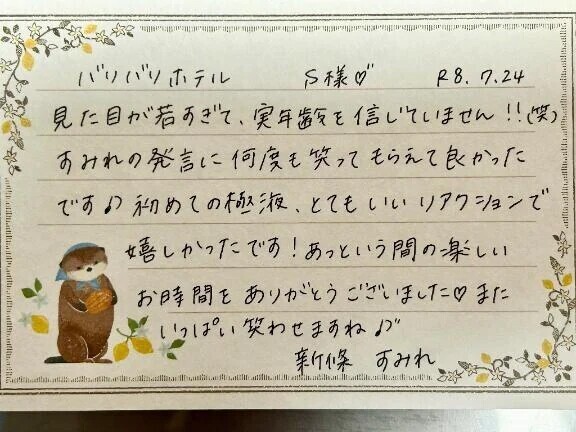 バリバリホテル S様♡ R8.7.24
見た目が若すぎて、実年齢を信じていません!!(笑)
すみれの発言に何度も笑ってもらえて良かった
です♪初めての極液、とてもいいリアクションで
嬉しかったです!あっという間の楽しい
お時間をありがとうございました♡また
いっぱい笑わせますね♪
新條 すみれ